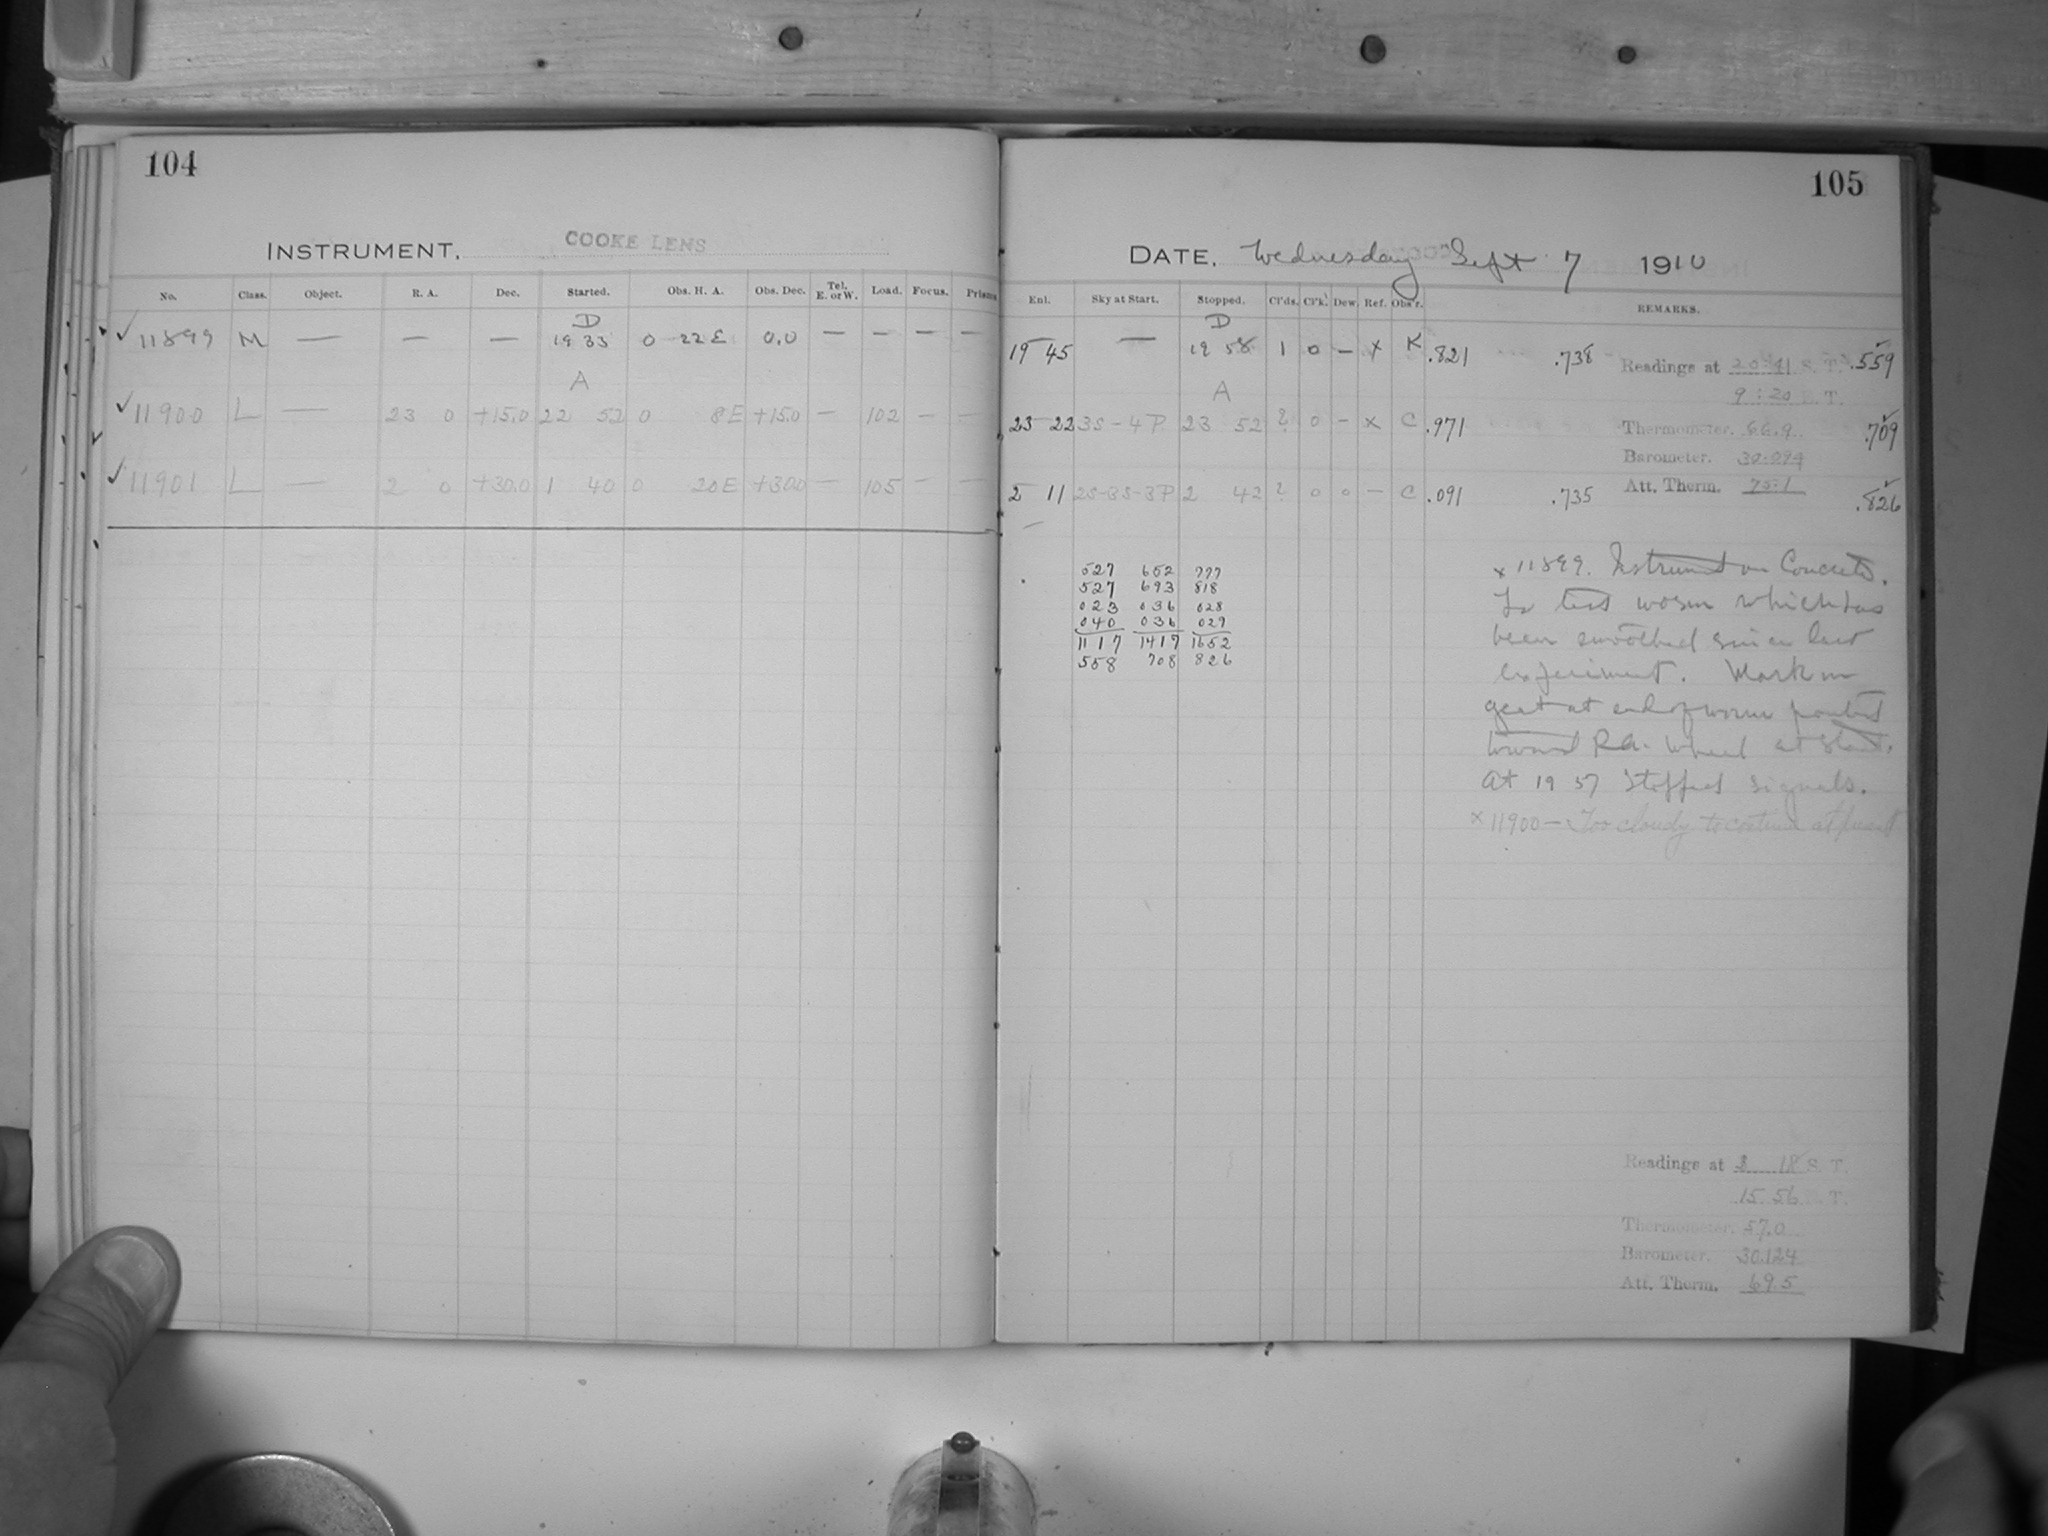 104
INSTRUMENT. COOKE LENS
No. Class. Object. R. A. Dec. Started. Obs. H. A. Obs. Dec. Tel. E. or W. Load. Focus. Prisms
D
✓ 11899 M — — — 19 33 0 22 E 0.0 — — — —
A
✓ 11900 L — 23 0 +15.0 22 52 0 8 E +15.0 — 102 — —
✓ 11901 L — 2 0 +30.0 1 40 0 20 E +30.0 — 105 — —
105
DATE. Wednesday Sept 7 1910
Enl. Sky at Start. Stopped. Cl'ds. Cl'k. Dew. Ref. Obs'r. REMARKS.
D
19 45 — 19 58 1 0 — x K .821 .738 Readings at 20:41 S. T. .559
9:20 T.
A
23 22 3S-4P 23 52 ? 0 — x C .971 Thermometer. 66.9 .709
Barometer. 30.094
2 11 2S-3S-3P 2 42 ? 0 0 — C .091 .735 Att. Therm. 75.1 .826
527 652 777
527 693 818
023 036 028
040 036 029
1117 1417 1652
558 708 826
x 11899. Instrument on Concrete.
To test worm which has
been smoothed since last
experiment. Mark on
gear at end of worm pointed
toward R.A. wheel at start.
At 19 57 stopped signals.
x 11900 — Too cloudy to continue at present
Readings at 3 18 S. T.
15 56 T.
Thermometer. 57.0
Barometer. 30.124
Att. Therm. 69.5